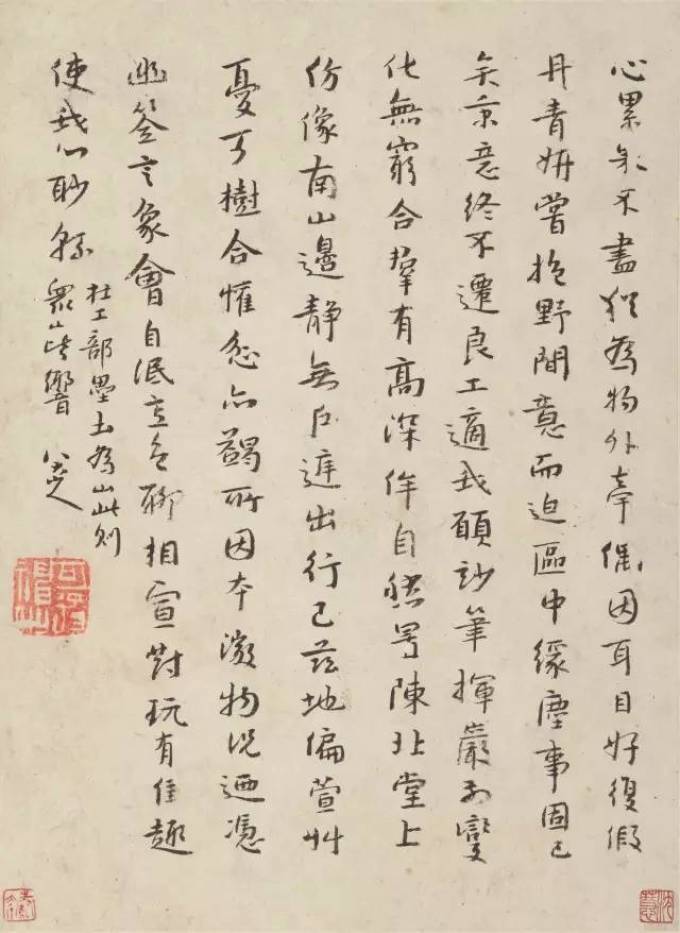 心累不盡猶為物外牽偶因耳目好復假
丹青妍嘗抱野間意而迫區中緣塵事固已
矣意終不遷良工適我願妙筆揮巖變
化無窮合羣有高深侔自然陳北堂上
仿像南山邊靜無戶庭出行已茲地偏萱艸
憂可樹合懽忿亦蠲所因本微物況迺憑
幽筌言象會自泯意色聊相宣對玩有佳趣
使我心眇綿
杜工部壘土為山此則
眾山皆響 八大山人